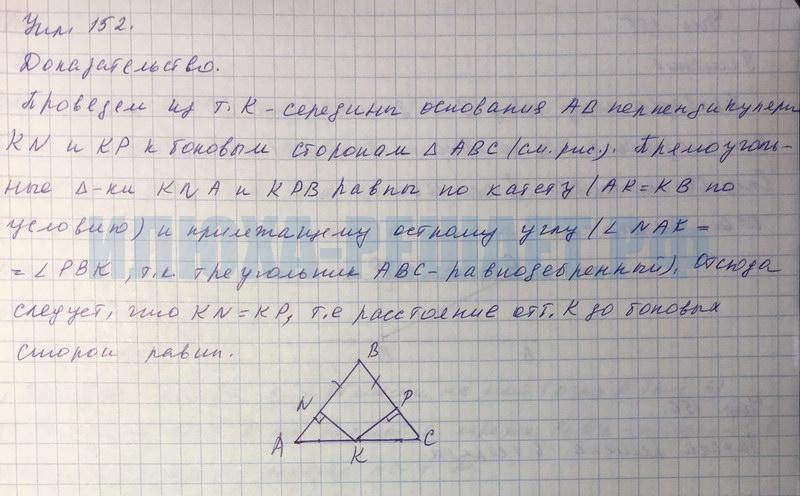 Упр. 152.
Доказательство.
Проведем из т. К - середины основания АВ перпендикуляры
KN и KP к боковым сторонам Δ ABC (см. рис.). Прямоуголь-
ные Δ-ки KNA и KPB равны по катету (AK = KB по
условию) и прилежащему острому углу (∠ NAK =
= ∠ PBK, т.к. треугольник ABC - равнобедренный). Отсюда
следует, что KN = KP, т.е расстояние от т. К до боковых
сторон равны.
B
N P
A K C